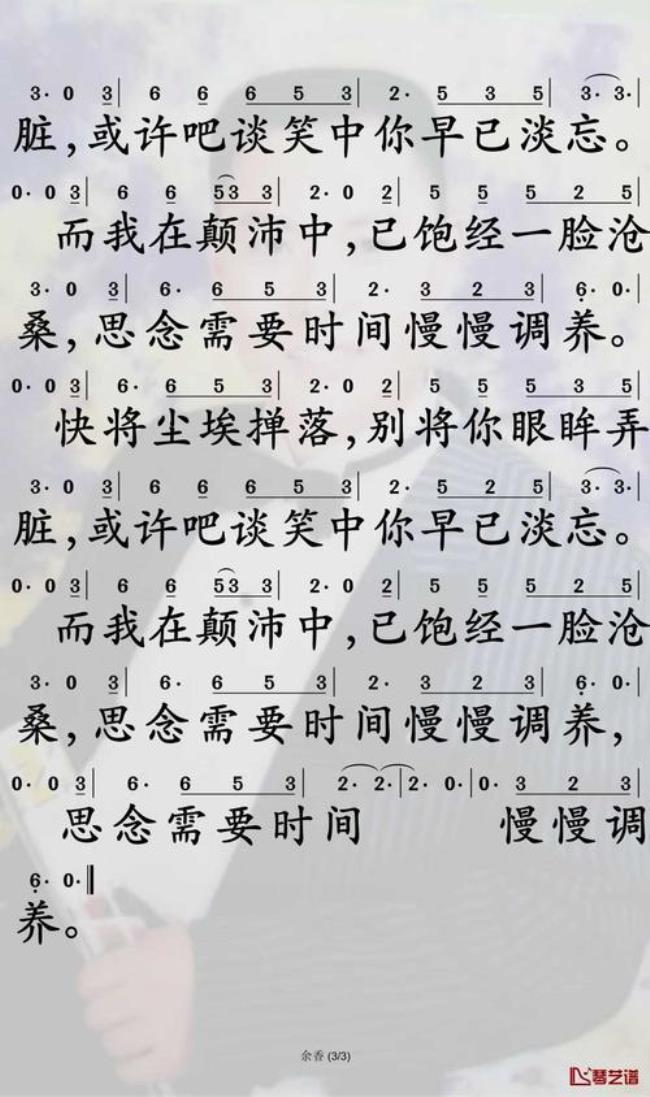 3· 0 3| 6 6 6 5 3| 2· 5 3 5| 3· 3·|
脏,或许吧谈笑中你早已淡忘。
0· 0 3| 6 6 53 3| 2· 0 2| 5 5 5 2 5|
而我在颠沛中,已饱经一脸沧
3· 0 3| 6· 6 5 3| 2· 3 2 3| 6· 0·|
桑,思念需要时间慢慢调养。
0· 0 3| 6· 6 5 3| 2· 0 2| 5 5 5 3 5|
快将尘埃掸落,别将你眼眸弄
3· 0 3| 6 6 6 5 3| 2· 5 2 5| 3· 3·|
脏,或许吧谈笑中你早已淡忘。
0· 0 3| 6 6 53 3| 2· 0 2| 5 5 5 2 5|
而我在颠沛中,已饱经一脸沧
3· 0 3| 6· 6 5 3| 2· 3 2 3| 6· 0·|
桑,思念需要时间慢慢调养,
0· 0 3| 6· 6 5 3| 2· 2·|2· 0·|0· 3 2 3|
思念需要时间 慢慢调
6· 0·‖
养。
余香 (3/3)
琴艺谱